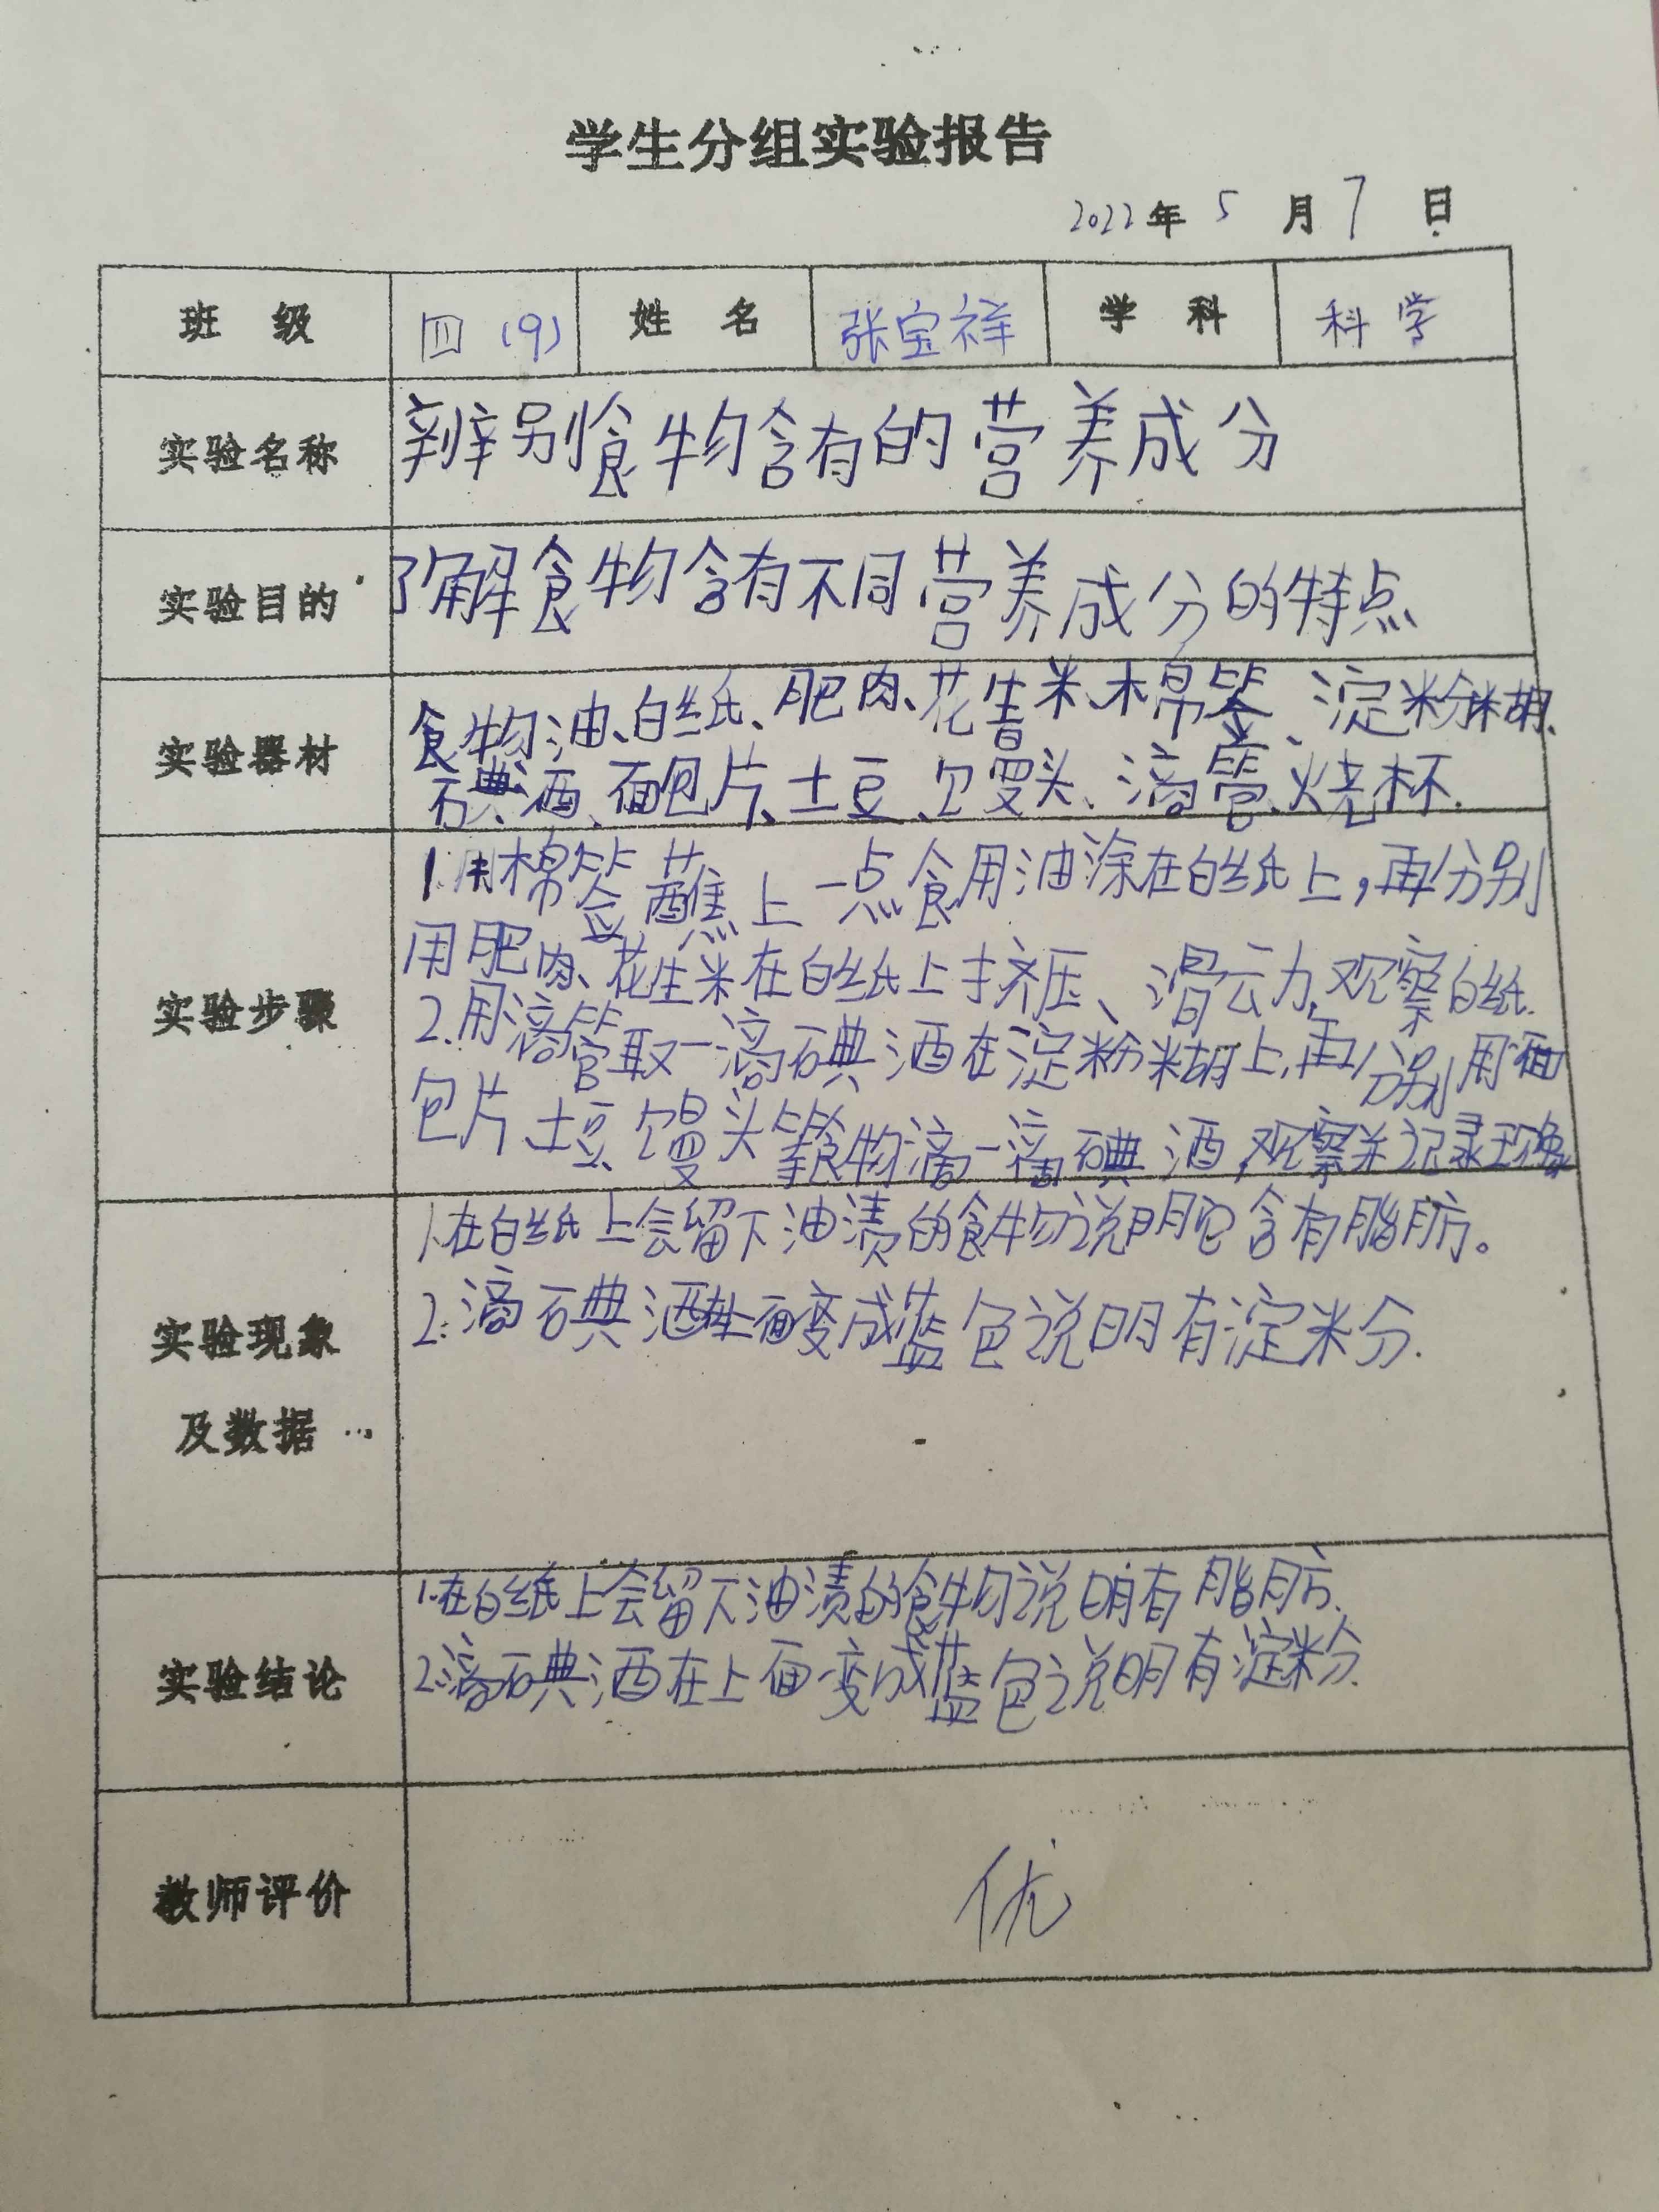 学生分组实验报告
2022年 5 月 7 日
班 级 四(9) 姓 名 张宝祥 学 科 科学
实验名称 辨别食物含有的营养成分
实验目的 了解食物含有不同营养成分的特点
实验器材
食物油、白纸、肥肉、花生米、棉签、淀粉糊、
碘酒、面包片、土豆、馒头、滴管、烧杯.
实验步骤
1.用棉签蘸上一点食用油涂在白纸上,再分别
用肥肉、花生米在白纸上挤压、滑动,观察白纸.
2.用滴管取一滴碘酒在淀粉糊上,再分别用面
包片、土豆、馒头等食物滴一滴碘酒,观察并记录现象
实验现象
及数据
1.在白纸上会留下油渍的食物说明它含有脂肪。
2.滴碘酒在上面变成蓝色说明有淀粉.
实验结论
1.在白纸上会留下油渍的食物说明有脂肪.
2.滴碘酒在上面变成蓝色说明有淀粉.
教师评价 优